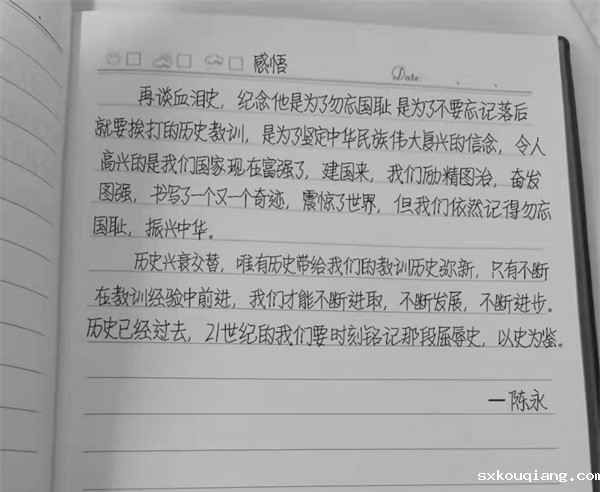 感悟
Date:
再谈血泪史，纪念他是为了勿忘国耻是为了不要忘记落后
就要挨打的历史教训，是为了坚定中华民族伟大复兴的信念，令人
高兴的是我们国家现在富强了，建国来，我们励精图治，奋发
图强，书写了一个又一个奇迹，震惊了世界，但我们依然记得勿忘
国耻，振兴中华。
历史兴衰交替，唯有历史带给我们的教训历史弥新，只有不断
在教训经验中前进，我们才能不断进取，不断发展，不断进步。
历史已经过去，21世纪的我们要时刻铭记那段屈辱史，以史为鉴。
一陈永
sxkouqiang.com